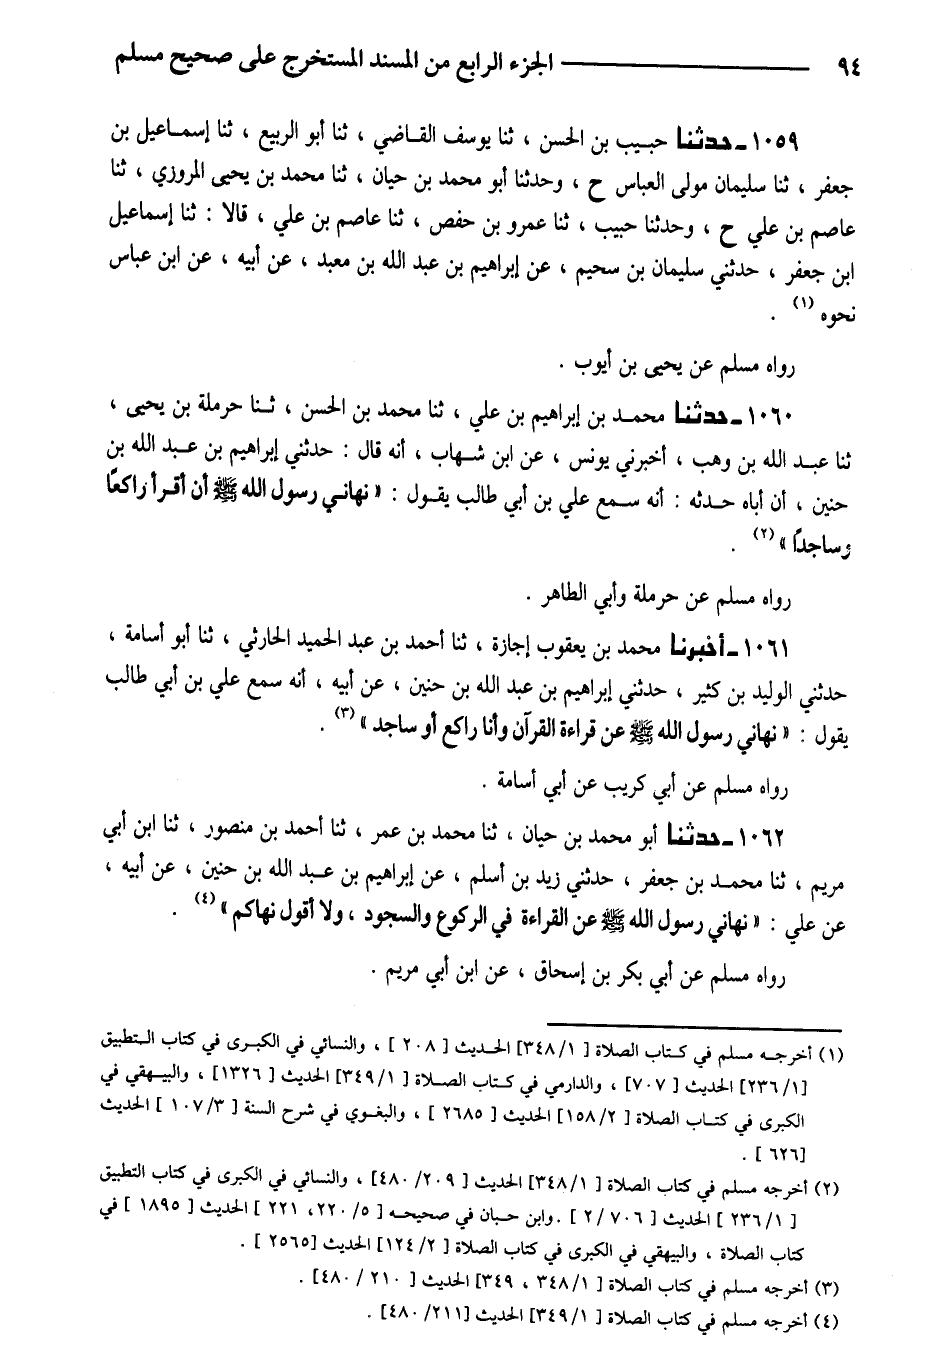 ٩٤ الجزء الرابع من المسند المستخرج على صحيح مسلم
١٠٥٩ـ حدثنا حبيب بن الحسن ، ثنا يوسف القاضي ، ثنا أبو الربيع ، ثنا إسماعيل بن
جعفر ، ثنا سليمان مولى العباس ح ، وحدثنا أبو محمد بن حيان ، ثنا محمد بن يحيى المروزي ، ثنا
عاصم بن علي ح ، وحدثنا حبيب ، ثنا عمرو بن حفص ، ثنا عاصم بن علي ، قالا : ثنا إسماعيل
ابن جعفر ، حدثني سليمان بن سحيم ، عن إبراهيم بن عبد الله بن معبد ، عن أبيه ، عن ابن عباس
نحوه (١) .
رواه مسلم عن يحيى بن أيوب .
١٠٦٠ـ حدثنا محمد بن إبراهيم بن علي ، ثنا محمد بن الحسن ، ثنا حرملة بن يحيى ،
ثنا عبد الله بن وهب ، أخبرني يونس ، عن ابن شهاب ، أنه قال : حدثني إبراهيم بن عبد الله بن
حنين ، أن أباه حدثه : أنه سمع علي بن أبي طالب يقول : « نهاني رسول الله ﷺ أن أقرأ راكعًا
وساجدًا » (٢) .
رواه مسلم عن حرملة وأبي الطاهر .
١٠٦١ـ أخبرنا محمد بن يعقوب إجازة ، ثنا أحمد بن عبد الحميد الحارثي ، ثنا أبو أسامة ،
حدثني الوليد بن كثير ، حدثني إبراهيم بن عبد الله بن حنين ، عن أبيه ، أنه سمع علي بن أبي طالب
يقول : « نهاني رسول الله ﷺ عن قراءة القرآن وأنا راكع أو ساجد » (٣) .
رواه مسلم عن أبي كريب عن أبي أسامة .
١٠٦٢ـ حدثنا أبو محمد بن حيان ، ثنا محمد بن عمر ، ثنا أحمد بن منصور ، ثنا ابن أبي
مريم ، ثنا محمد بن جعفر ، حدثني زيد بن أسلم ، عن إبراهيم بن عبد الله بن حنين ، عن أبيه ،
عن علي : « نهاني رسول الله ﷺ عن القراءة في الركوع والسجود ، ولا أقول نهاكم » (٤) .
رواه مسلم عن أبي بكر بن إسحاق ، عن ابن أبي مريم .
(١) أخرجه مسلم في كتاب الصلاة [ ٣٤٨/١] الحديث [ ٢٠٨ ] ، والنسائي في الكبرى في كتاب التطبيق
[٢٣٦/١] الحديث [ ٧٠٧] ، والدارمي في كتاب الصلاة [ ٣٤٩/١] الحديث [ ١٣٢٦] ، والبيهقي في
الكبرى في كتاب الصلاة [ ١٥٨/٢] الحديث [ ٢٦٨٥ ] ، والبغوي في شرح السنة [ ١٠٧/٣ ] الحديث
[٦٢٦ ] .
(٢) أخرجه مسلم في كتاب الصلاة [ ٣٤٨/١] الحديث [ ٤٨٠/٢٠٩] ، والنسائي في الكبرى في كتاب التطبيق
[ ٢٣٦/١ ] الحديث [ ٢/٧٠٦ ] . وابن حبان في صحيحه [ ٢٢٠/٥، ٢٢١ ] الحديث [ ١٨٩٥ ] في
كتاب الصلاة ، والبيهقي في الكبرى في كتاب الصلاة [ ١٢٤/٢] الحديث [٢٥٦٥ ] .
(٣) أخرجه مسلم في كتاب الصلاة [ ٣٤٨/١ ، ٣٤٩] الحديث [ ٤٨٠/٢١٠] .
(٤) أخرجه مسلم في كتاب الصلاة [ ٣٤٩/١] الحديث [٤٨٠/٢١١] .